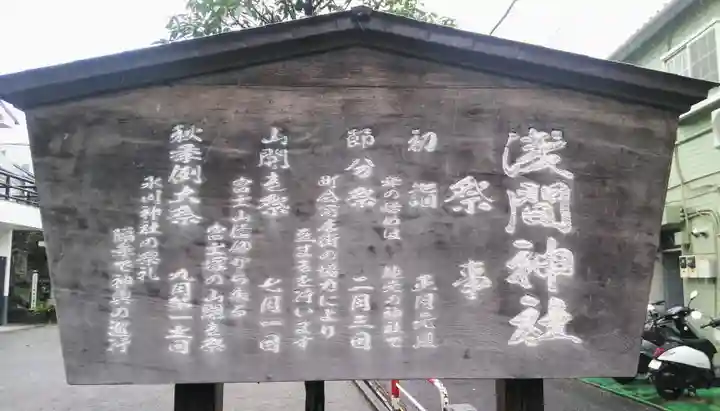 浅間神社
祭事
初詣 正月元旦
年の始めは 地元の神社で
節分祭 二月三日
町会商店街の協力により
豆まきを行います
山開き祭 七月一日
富士山信仰から来る
富士塚の山開き祭
秋季例大祭 九月第二土日
氷川神社の祭礼
隔年で神輿の巡行